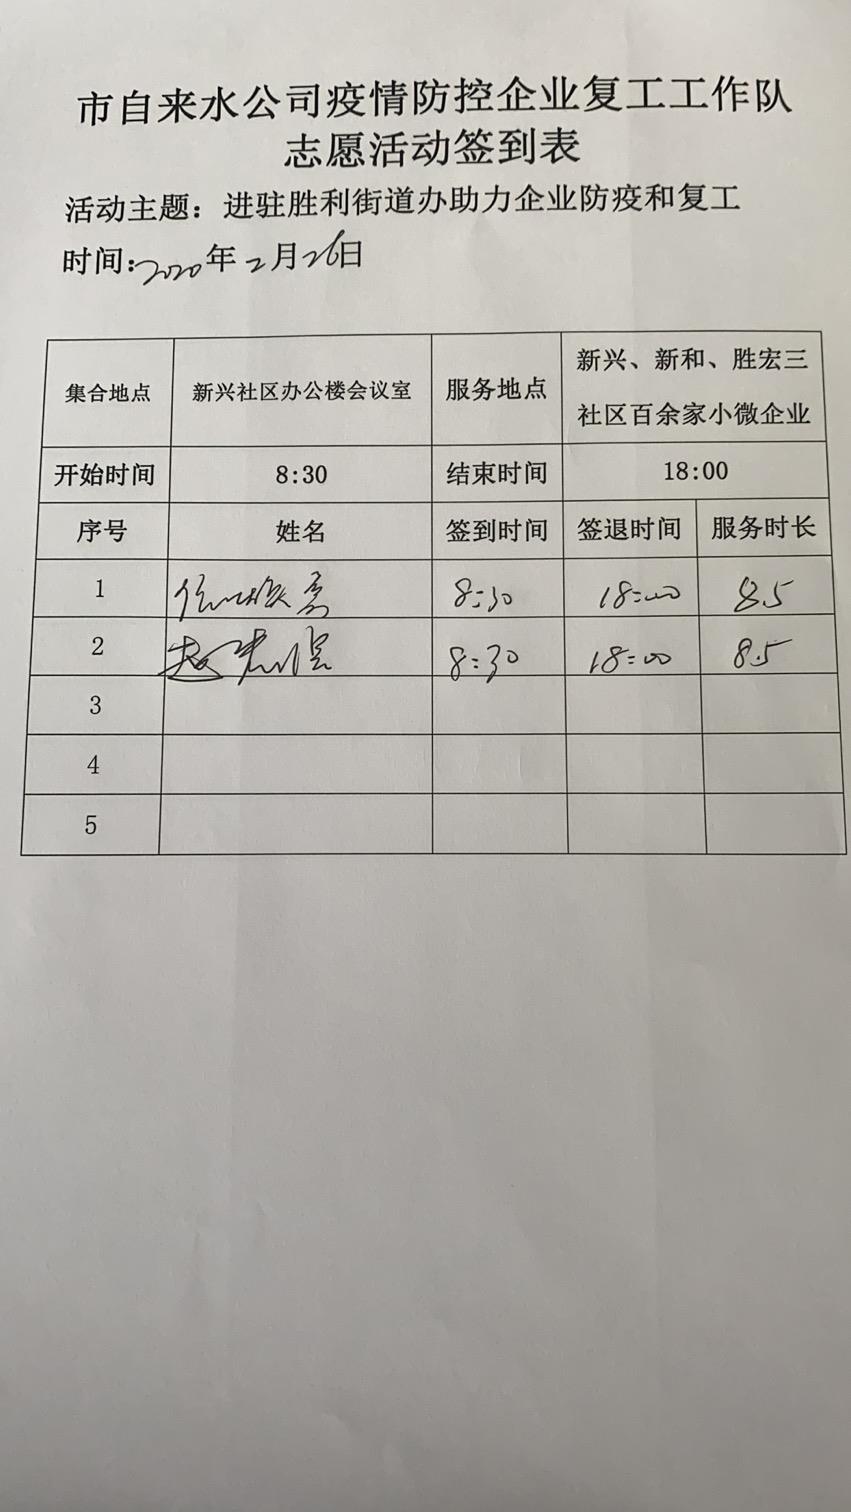 市自来水公司疫情防控企业复工工作队
志愿活动签到表
活动主题：进驻胜利街道办助力企业防疫和复工
时间:2020年2月26日
集合地点 新兴社区办公楼会议室 服务地点 新兴、新和、胜宏三
社区百余家小微企业
开始时间 8:30 结束时间 18:00
序号 姓名 签到时间 签退时间 服务时长
1 8:30 18:00 8.5
2 赵 8:30 18:00 8.5
3
4
5